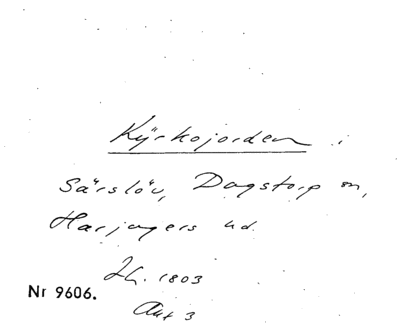 Kyrkojorden i
Särslöv, Dagstorp sn,
Harjagers hd.
1803
Nr 9606.
Akt 3